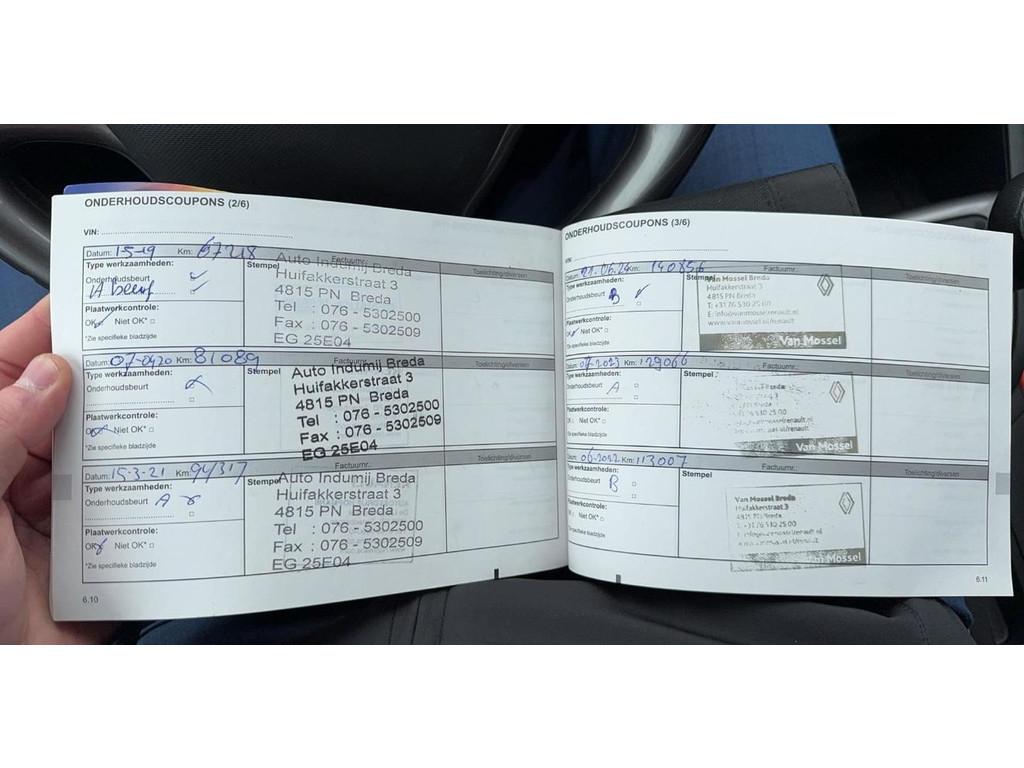 ONDERHOUDSCOUPONS (2/6)
VIN:
Datum: 1-5-19 Km: 67218 Factuurnr.: Toelichting/diversen
Type werkzaamheden: Stempel
Onderhoudsbeurt
A beurt
Plaatwerkcontrole:
OK* Niet OK*
*Zie specifieke bladzijde
Auto Indumij Breda
Huifakkerstraat 3
4815 PN Breda
Tel : 076 - 5302500
Fax : 076 - 5302509
EG 25E04
Datum: 07-04-20 Km: 81089 Factuurnr.: Toelichting/diversen
Type werkzaamheden: Stempel
Onderhoudsbeurt
Plaatwerkcontrole:
OK* Niet OK*
*Zie specifieke bladzijde
Auto Indumij Breda
Huifakkerstraat 3
4815 PN Breda
Tel : 076 - 5302500
Fax : 076 - 5302509
EG 25E04
Datum: 15-3-21 Km: 94317 Factuurnr.: Toelichting/diversen
Type werkzaamheden: Stempel
Onderhoudsbeurt A
Plaatwerkcontrole:
OK* Niet OK*
*Zie specifieke bladzijde
Auto Indumij Breda
Huifakkerstraat 3
4815 PN Breda
Tel : 076 - 5302500
Fax : 076 - 5302509
EG 25E04
6.10
ONDERHOUDSCOUPONS (3/6)
Datum: 21-06-24 Km: 140856 Factuurnr.: Toelichting/diversen
Type werkzaamheden: Stempel
Onderhoudsbeurt B
Plaatwerkcontrole:
OK* Niet OK*
*Zie specifieke bladzijde
Van Mossel Breda
Huifakkerstraat 3
4815 PN Breda
T: +31 76 530 25 00
E: info@vanmosselrenault.nl
www.vanmossel.nl/renault
Van Mossel
Datum: 07-2023 Km: 129066 Factuurnr.: Toelichting/diversen
Type werkzaamheden: Stempel
Onderhoudsbeurt A
Plaatwerkcontrole:
OK Niet OK*
*Zie specifieke bladzijde
Van Mossel
Datum: 06-2022 Km: 113007 Factuurnr.: Toelichting/diversen
Type werkzaamheden: Stempel
Onderhoudsbeurt B
Plaatwerkcontrole:
OK Niet OK*
*Zie specifieke bladzijde
Van Mossel Breda
Huifakkerstraat 3
4815 PN Breda
T: +31 76 530 25 00
Van Mossel
6.11